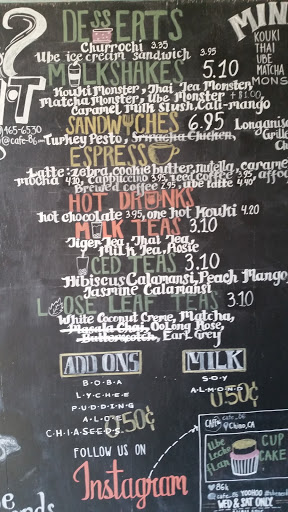 DESSERTS
Churrochi 3.35
Ube ice cream sandwich 3.95
MILKSHAKES 5.10
Kouki Monster, Thai Tea Monster,
Matcha Monster, Ube Monster +$1.00
Caramel Milk Slush Cali-mango
SANDWICHES 6.95
Turkey Pesto, Sriracha Chicken,
Longanisa
Grille
ESPRESSO
Latte: zebra, cookie butter, nutella, carame
Mocha 4.20 Cappuccino 3.95, affo
Brewed coffee 2.95, ube latte 4.40
HOT DRINKS
hot chocolate 3.95, one hot Kouki 4.20
MILK TEAS 3.10
Tiger Tea, Thai Tea,
Milk Tea, Rosie
ICED TEAS 3.10
Hibiscus Calamansi, Peach Mango
Jasmine Calamansi
LOOSE LEAF TEAS 3.10
White Coconut Creme, Matcha,
Masala Chai, OoLong Rose,
Butterscotch, Earl Grey
ADD ONS
BOBA
LYCHEE
PUDDING
ALOE
CHIASEEDS
50¢
MILK
SOY
ALMOND
50¢
FOLLOW US ON
Instagram
MIN
KOUKI
THAI
UBE
MATCHA
MONS
465-6530
@cafe-86
cafe_86
Chino, CA
CUP
CAKE
86k
@cafe_86 YOOHOO
WED & SAT ONLY